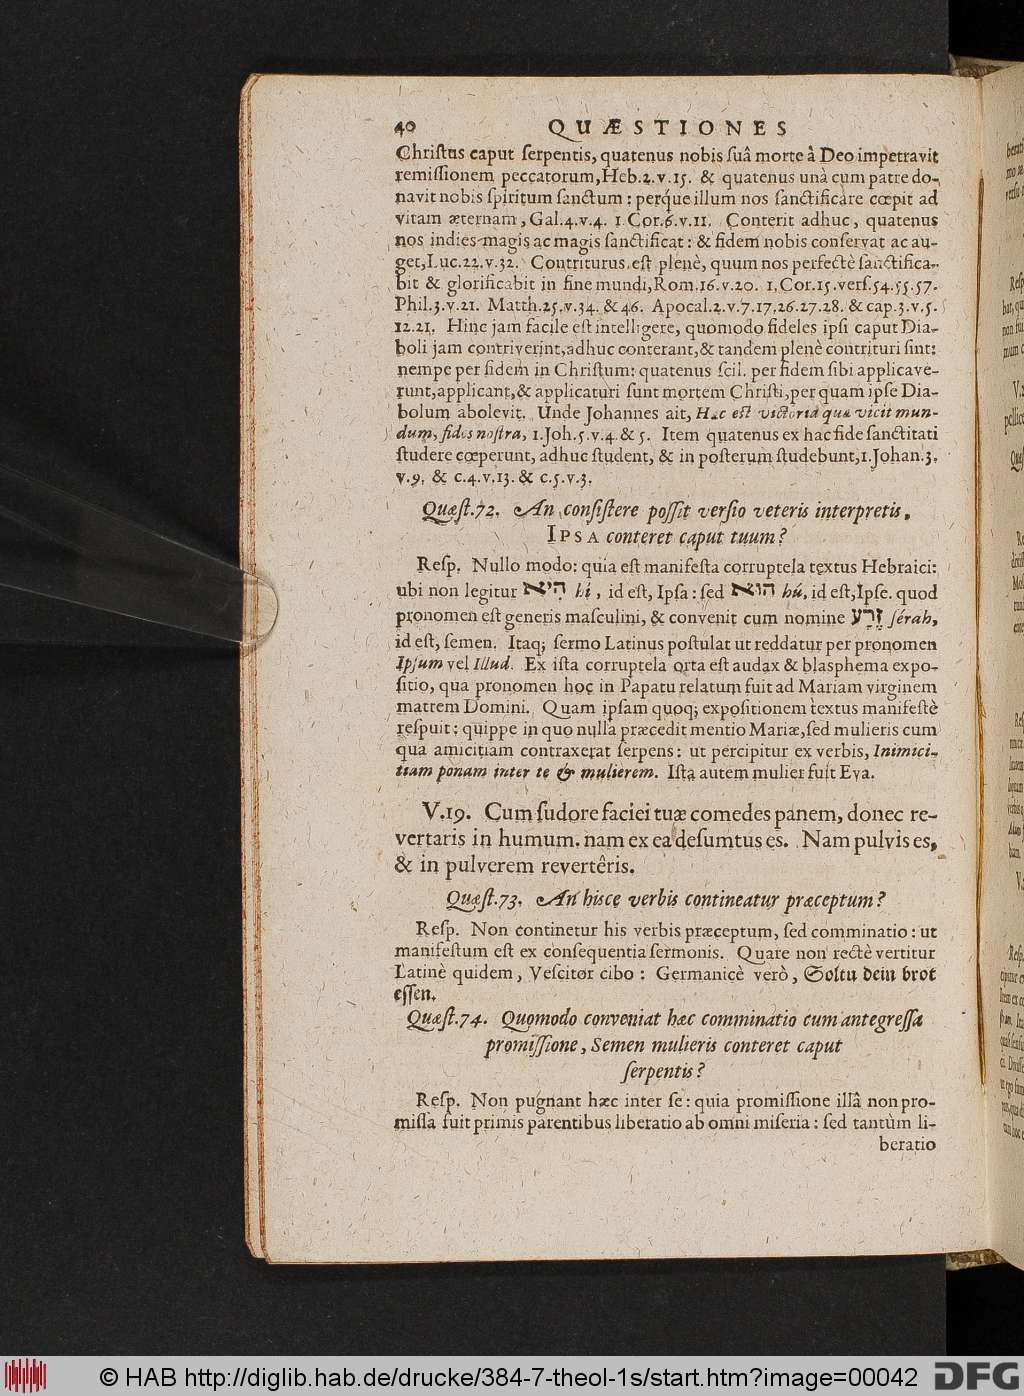 40 QUÆSTIONES
Christus caput serpentis, quatenus nobis suâ morte à Deo impetravit
remissionem peccatorum, Heb.2.v.15. & quatenus unà cum patre do-
navit nobis spiritum sanctum: perq́ue illum nos sanctificare cœpit ad
vitam æternam, Gal.4.v.4. 1.Cor.6.v.11. Conterit adhuc, quatenus
nos indies magis ac magis sanctificat: & fidem nobis conservat ac au-
get, Luc.22.v.32. Contriturus est plenè, quum nos perfectè sanctifica-
bit & glorificabit in fine mundi, Rom.16.v.20. 1.Cor.15.vers.54.55.57.
Phil.3.v.21. Matth.25.v.34. & 46. Apocal.2.v.7.17.26.27.28. & cap.3.v.5.
12.21. Hinc jam facile est intelligere, quomodo fideles ipsi caput Dia-
boli jam contriverint, adhuc conterant, & tandem plenè contrituri sint:
nempe per fidem in Christum: quatenus scil. per fidem sibi applicave-
runt, applicant, & applicaturi sunt mortem Christi, per quam ipse Dia-
bolum abolevit. Unde Johannes ait, Hæc est victoria quæ vicit mun-
dum, fides nostra, 1.Joh.5.v.4. & 5. Item quatenus ex hac fide sanctitati
studere cœperunt, adhuc student, & in posterum studebunt, 1.Johan.3.
v.9. & c.4.v.13. & c.5.v.3.
Quæst.72. An consistere possit versio veteris interpretis,
IPSA conteret caput tuum?
Resp. Nullo modo: quia est manifesta corruptela textus Hebraici:
ubi non legitur הִיא hi, id est, Ipsa: sed הוּא hú, id est, Ipse. quod
pronomen est generis masculini, & convenit cum nomine זֶרַע sérah,
id est, semen. Itaq; sermo Latinus postulat ut reddatur per pronomen
Ipsum vel Illud. Ex ista corruptela orta est audax & blasphema expo-
sitio, qua pronomen hoc in Papatu relatum fuit ad Mariam virginem
matrem Domini. Quam ipsam quoq; expositionem textus manifestè
respuit: quippe in quo nulla præcedit mentio Mariæ, sed mulieris cum
qua amicitiam contraxerat serpens: ut percipitur ex verbis, Inimici-
tiam ponam inter te & mulierem. Ista autem mulier fuit Eva.
V.19. Cum sudore faciei tuæ comedes panem, donec re-
vertaris in humum. nam ex ea desumtus es. Nam pulvis es,
& in pulverem revertêris.
Quæst.73. An hisce verbis contineatur præceptum?
Resp. Non continetur his verbis præceptum, sed comminatio: ut
manifestum est ex consequentia sermonis. Quare non rectè vertitur
Latinè quidem, Vescitor cibo: Germanicè verò, Soltu dein brot
essen.
Quæst.74. Quomodo conveniat hæc comminatio cum antegressa
promissione, Semen mulieris conteret caput
serpentis?
Resp. Non pugnant hæc inter se: quia promissione illâ non pro-
missa fuit primis parentibus liberatio ab omni miseria: sed tantùm li-
beratio
© HAB http://diglib.hab.de/drucke/384-7-theol-1s/start.htm?image=00042
DFG